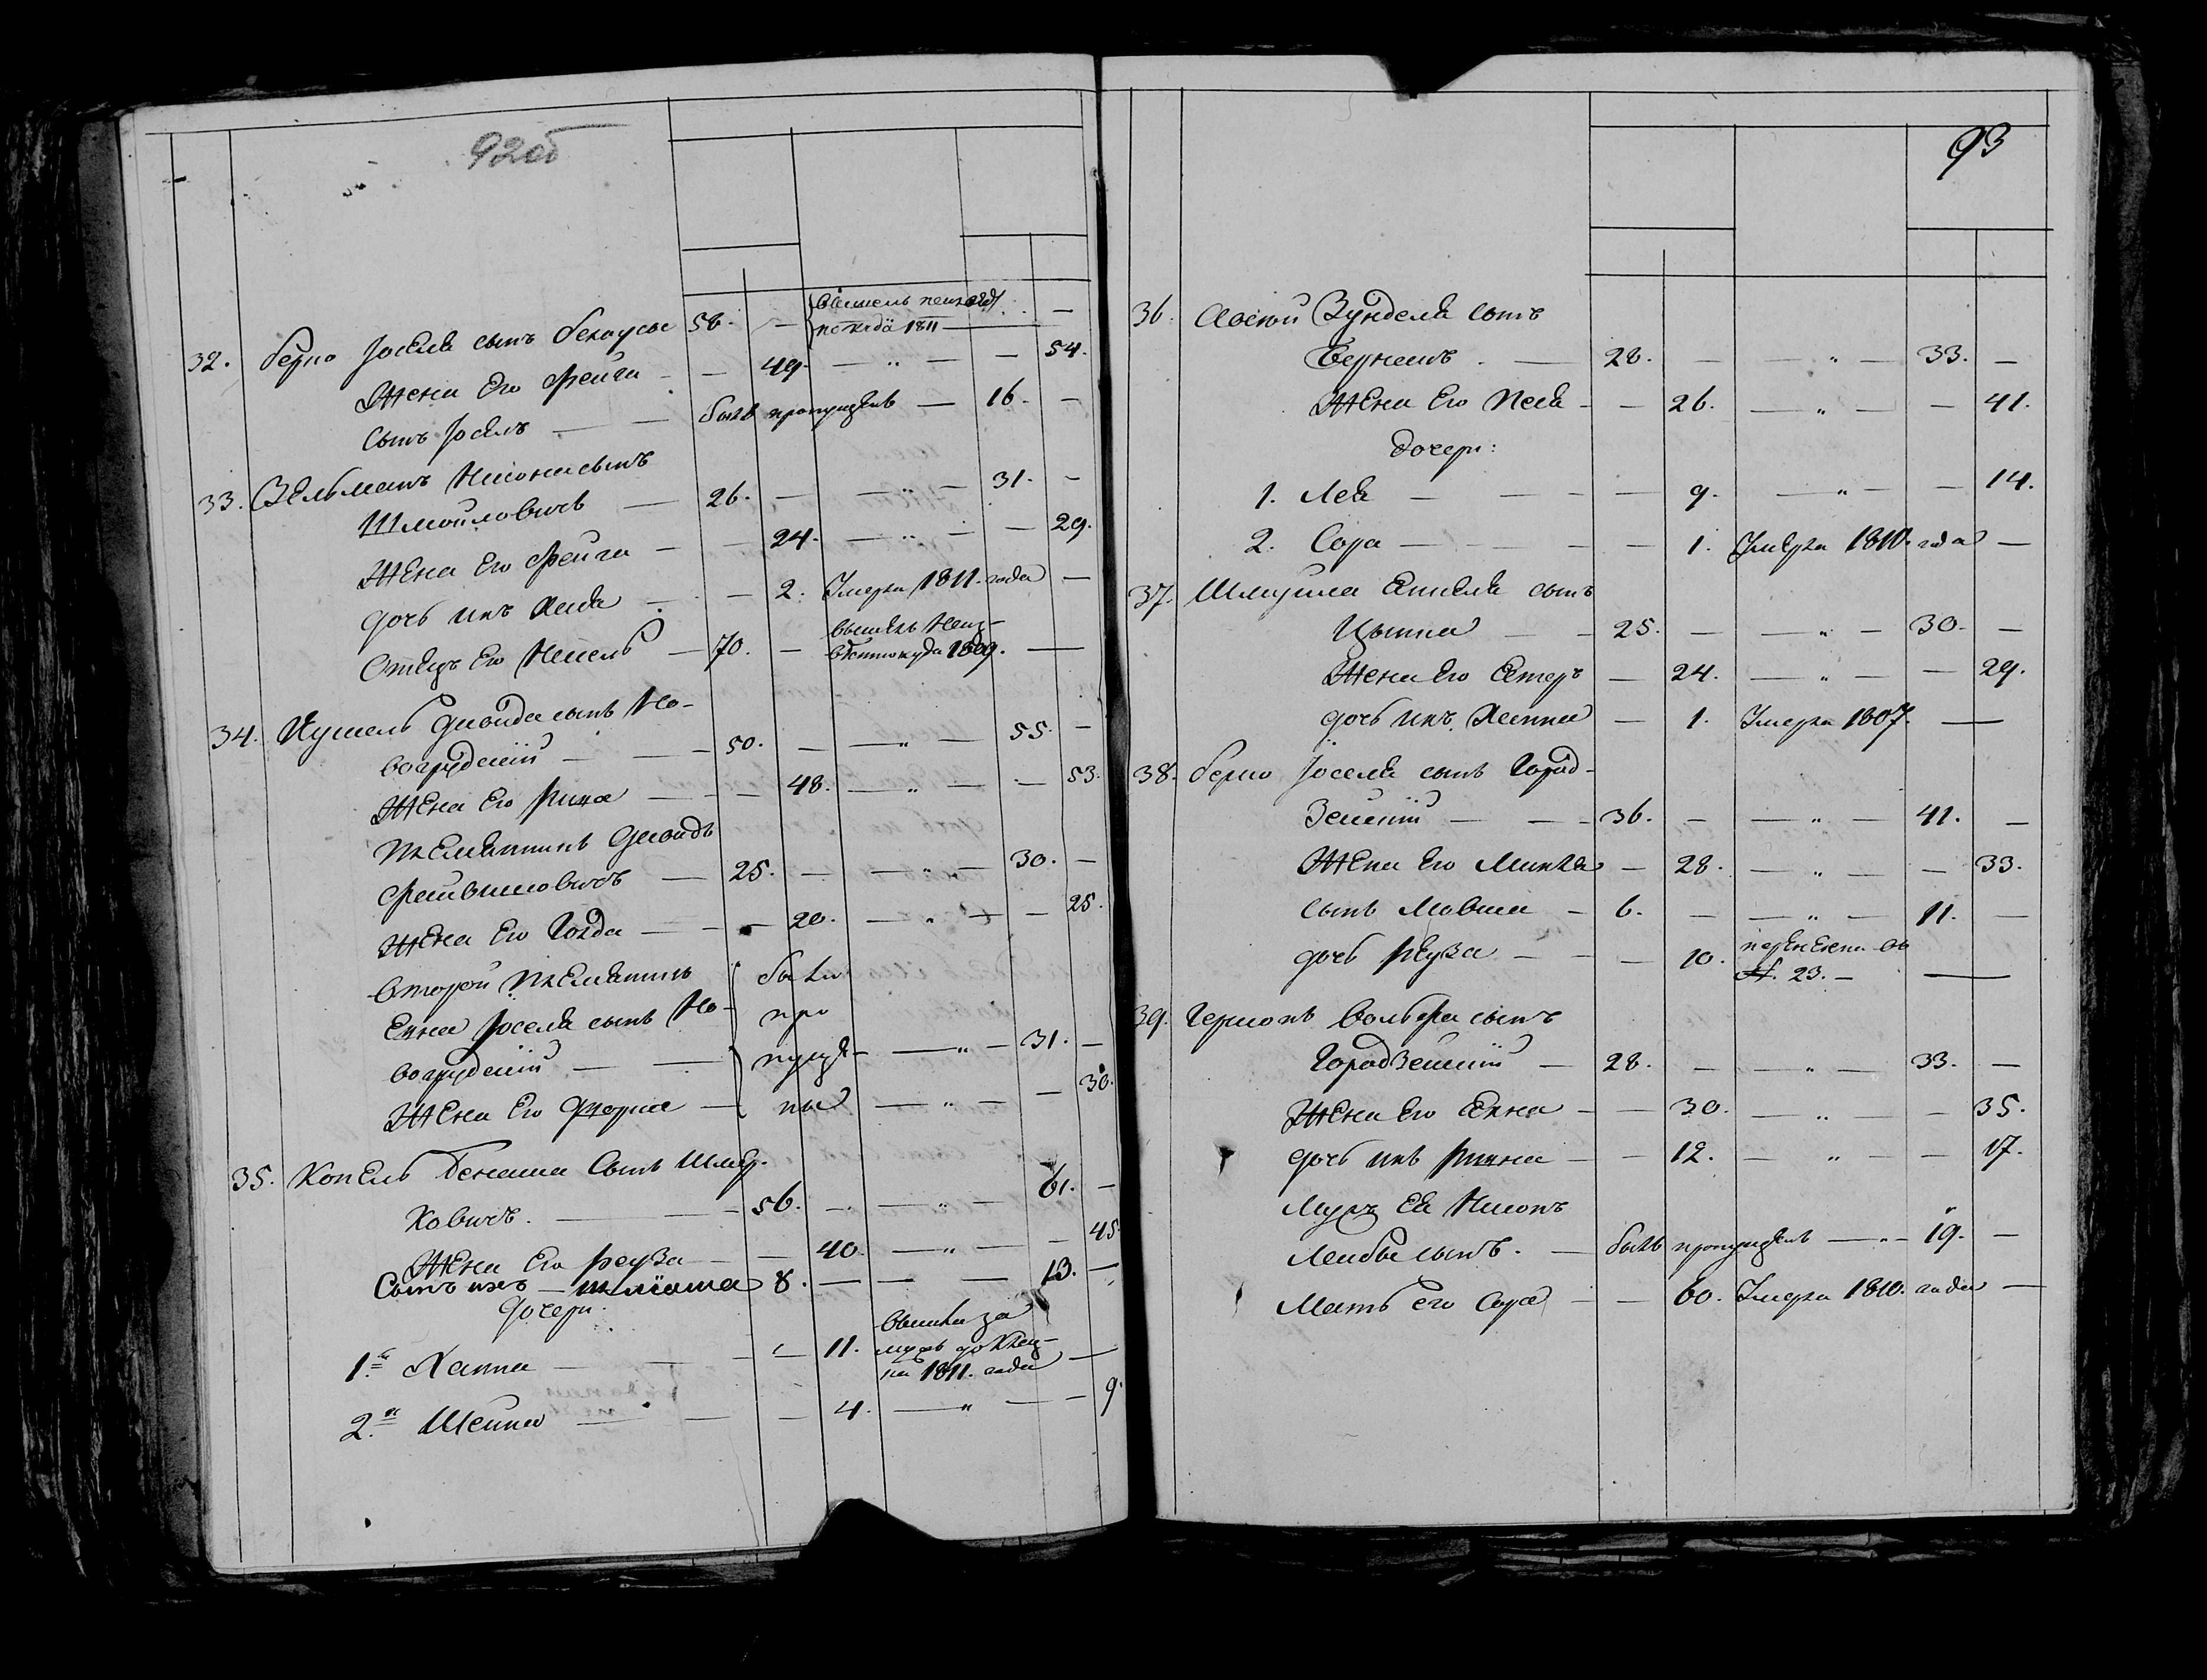 92об
32. Берко Іоселя сынъ Белоусъ 58. —
Жена Его Фейга — — 49. — „ — — 54.
Сынъ Іосель — — былъ пропущенъ — 16. —
33. Зельманъ Нисона сынъ
Шмойловичъ — 26. — — „ — 31. —
Жена Его Фейга — — 24. — „ — — 29.
дочь ихъ Хася — — 2. Умерла 1811. года —
Отецъ Его — 70. — вышелъ Неиз-
вѣстно куда 1809. —
34. Кушель Довида сынъ Но-
вогрудскій — — 50. — — „ — 55. —
Жена Его Рика — — 48. — „ — — 53.
племянникъ Довидъ
Фейвишовичъ — 25. — — „ — 30. —
Жена Его Голда — — 20. — „ — — 25.
Второй племянникъ были
Іоселя сынъ Но- про
вогрудскій — — пуще- — „ — 31. —
Жена Его — ны — „ — — 30.
35. Копель сынъ Шмер-
ковичъ. — — 56. — — „ — 61. —
Жена Его Реуза — — 40. — „ — — 45.
Сынъ ихъ — Шліома 8. — — — 13. —
Дочери:
1я Ханна — — — 11. вышла за
мужъ
1811. года —
2я Шейна — — — 4. — „ — — 9.
93
36. Зунделя сынъ
28. — — „ — 33. —
Жена Его Песя — — 26. — „ — — 41.
дочери:
1. Лея — — — — 9. — „ — — 14.
2. Сора — — — — 1. Умерла 1810. года —
37. Шмуйла сынъ
25. — — „ — 30. —
Жена Его Естеръ — 24. — „ — — 29.
дочь ихъ Ханна — 1. Умерла 1807. —
38. Берко Іоселя сынъ Город-
зейскій — — 36. — — „ — 41. —
Жена Его Минка — 28. — „ — — 33.
сынъ Мовша — 6. — — „ — 11. —
дочь Реуза — — — 10. перенесена въ
№. 23. — —
39. Гершонъ Вольфа сынъ
Городзейскій — 28. — — „ — 33. —
Жена Его — — 30. — „ — — 35.
дочь ихъ — — 12. — „ — — 17.
Мужъ Ея Нисонъ
Лейбы сынъ. — былъ пропущенъ — „ — 19. —
Мать его Сора — — 60. Умерла 1810. года —